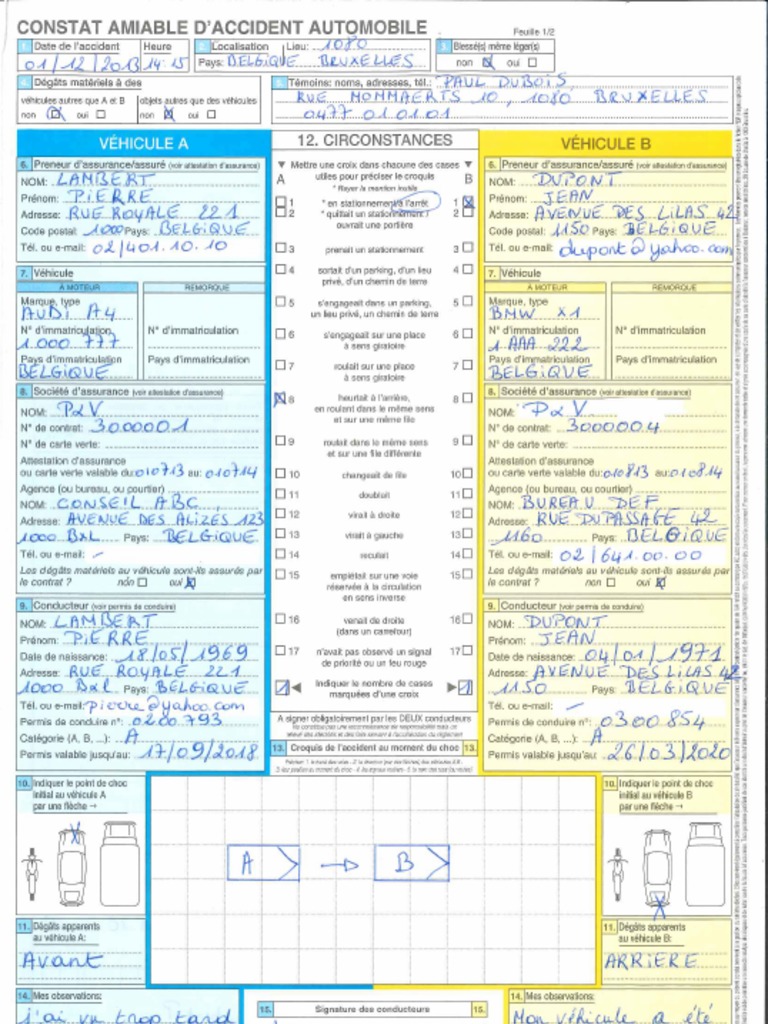 CONSTAT AMIABLE D'ACCIDENT AUTOMOBILE
Feuille 1/2
1. Date de l'accident Heure
01/12/2013 14:15
2. Localisation Lieu: 1080
Pays: BELGIQUE BRUXELLES
3. Blessé(s) même léger(s)
non oui
4. Dégâts matériels à des
véhicules autres que A et B objets autres que des véhicules
non oui non oui
5. Témoins: noms, adresses, tél.: PAUL DUBOIS,
RUE MOMMAERTS 10, 1080 BRUXELLES
0477 01.01.01
VÉHICULE A
6. Preneur d'assurance/assuré (voir attestation d'assurance)
NOM: LAMBERT
Prénom: PIERRE
Adresse: RUE ROYALE 221
Code postal: 1000 Pays: BELGIQUE
Tél. ou e-mail: 02/401.10.10
7. Véhicule
À MOTEUR REMORQUE
Marque, type
AUDI A4
N° d'immatriculation N° d'immatriculation
1.000.777
Pays d'immatriculation Pays d'immatriculation
BELGIQUE
8. Société d'assurance (voir attestation d'assurance)
NOM: P&V
N° de contrat: 3000001
N° de carte verte:
Attestation d'assurance
ou carte verte valable du: 010713 au: 010714
Agence (ou bureau, ou courtier)
NOM: CONSEIL ABC
Adresse: AVENUE DES ALIZES 123
1000 BXL Pays: BELGIQUE
Tél. ou e-mail: -
Les dégâts matériels au véhicule sont-ils assurés par
le contrat ? non oui
9. Conducteur (voir permis de conduire)
NOM: LAMBERT
Prénom: PIERRE
Date de naissance: 18/05/1969
Adresse: RUE ROYALE 221
1000 Bxl Pays: BELGIQUE
Tél. ou e-mail: pierre@yahoo.com
Permis de conduire n°: 0200.793
Catégorie (A, B, ...): A
Permis valable jusqu'au: 17/09/2018
10. Indiquer le point de choc
initial au véhicule A
par une flèche →
11. Dégâts apparents
au véhicule A:
Avant
14. Mes observations:
j'ai vu trop tard
12. CIRCONSTANCES
Mettre une croix dans chacune des cases
A utiles pour préciser le croquis B
* Rayer la mention inutile
1 * en stationnement/à l'arrêt 1
2 * quittait un stationnement / 2
ouvrait une portière
3 prenait un stationnement 3
4 sortait d'un parking, d'un lieu 4
privé, d'un chemin de terre
5 s'engageait dans un parking, 5
un lieu privé, un chemin de terre
6 s'engageait sur une place 6
à sens giratoire
7 roulait sur une place 7
à sens giratoire
8 heurtait à l'arrière, 8
en roulant dans le même sens
et sur une même file
9 roulait dans le même sens 9
et sur une file différente
10 changeait de file 10
11 doublait 11
12 virait à droite 12
13 virait à gauche 13
14 reculait 14
15 empiétait sur une voie 15
réservée à la circulation
en sens inverse
16 venait de droite 16
(dans un carrefour)
17 n'avait pas observé un signal 17
de priorité ou un feu rouge
1 Indiquer le nombre de cases 1
marquées d'une croix
A signer obligatoirement par les DEUX conducteurs
13. Croquis de l'accident au moment du choc 13.
A → B
15. Signature des conducteurs 15.
VÉHICULE B
6. Preneur d'assurance/assuré (voir attestation d'assurance)
NOM: DUPONT
Prénom: JEAN
Adresse: AVENUE DES LILAS 42
Code postal: 1150 Pays: BELGIQUE
Tél. ou e-mail: dupont@yahoo.com
7. Véhicule
À MOTEUR REMORQUE
Marque, type
BMW X1
N° d'immatriculation N° d'immatriculation
1 AAA 222
Pays d'immatriculation Pays d'immatriculation
BELGIQUE
8. Société d'assurance (voir attestation d'assurance)
NOM: P&V
N° de contrat: 3000004
N° de carte verte:
Attestation d'assurance
ou carte verte valable du: 010813 au: 010814
Agence (ou bureau, ou courtier)
NOM: BUREAU DEF
Adresse: RUE DU PASSAGE 42
1160 Pays: BELGIQUE
Tél. ou e-mail: 02/641.00.00
Les dégâts matériels au véhicule sont-ils assurés par
le contrat ? non oui
9. Conducteur (voir permis de conduire)
NOM: DUPONT
Prénom: JEAN
Date de naissance: 04/01/1971
Adresse: AVENUE DES LILAS 42
1150 Pays: BELGIQUE
Tél. ou e-mail: -
Permis de conduire n°: 0300.854
Catégorie (A, B, ...): A
Permis valable jusqu'au: 26/03/2020
10. Indiquer le point de choc
initial au véhicule B
par une flèche →
11. Dégâts apparents
au véhicule B:
ARRIERE
14. Mes observations:
Mon véhicule a été